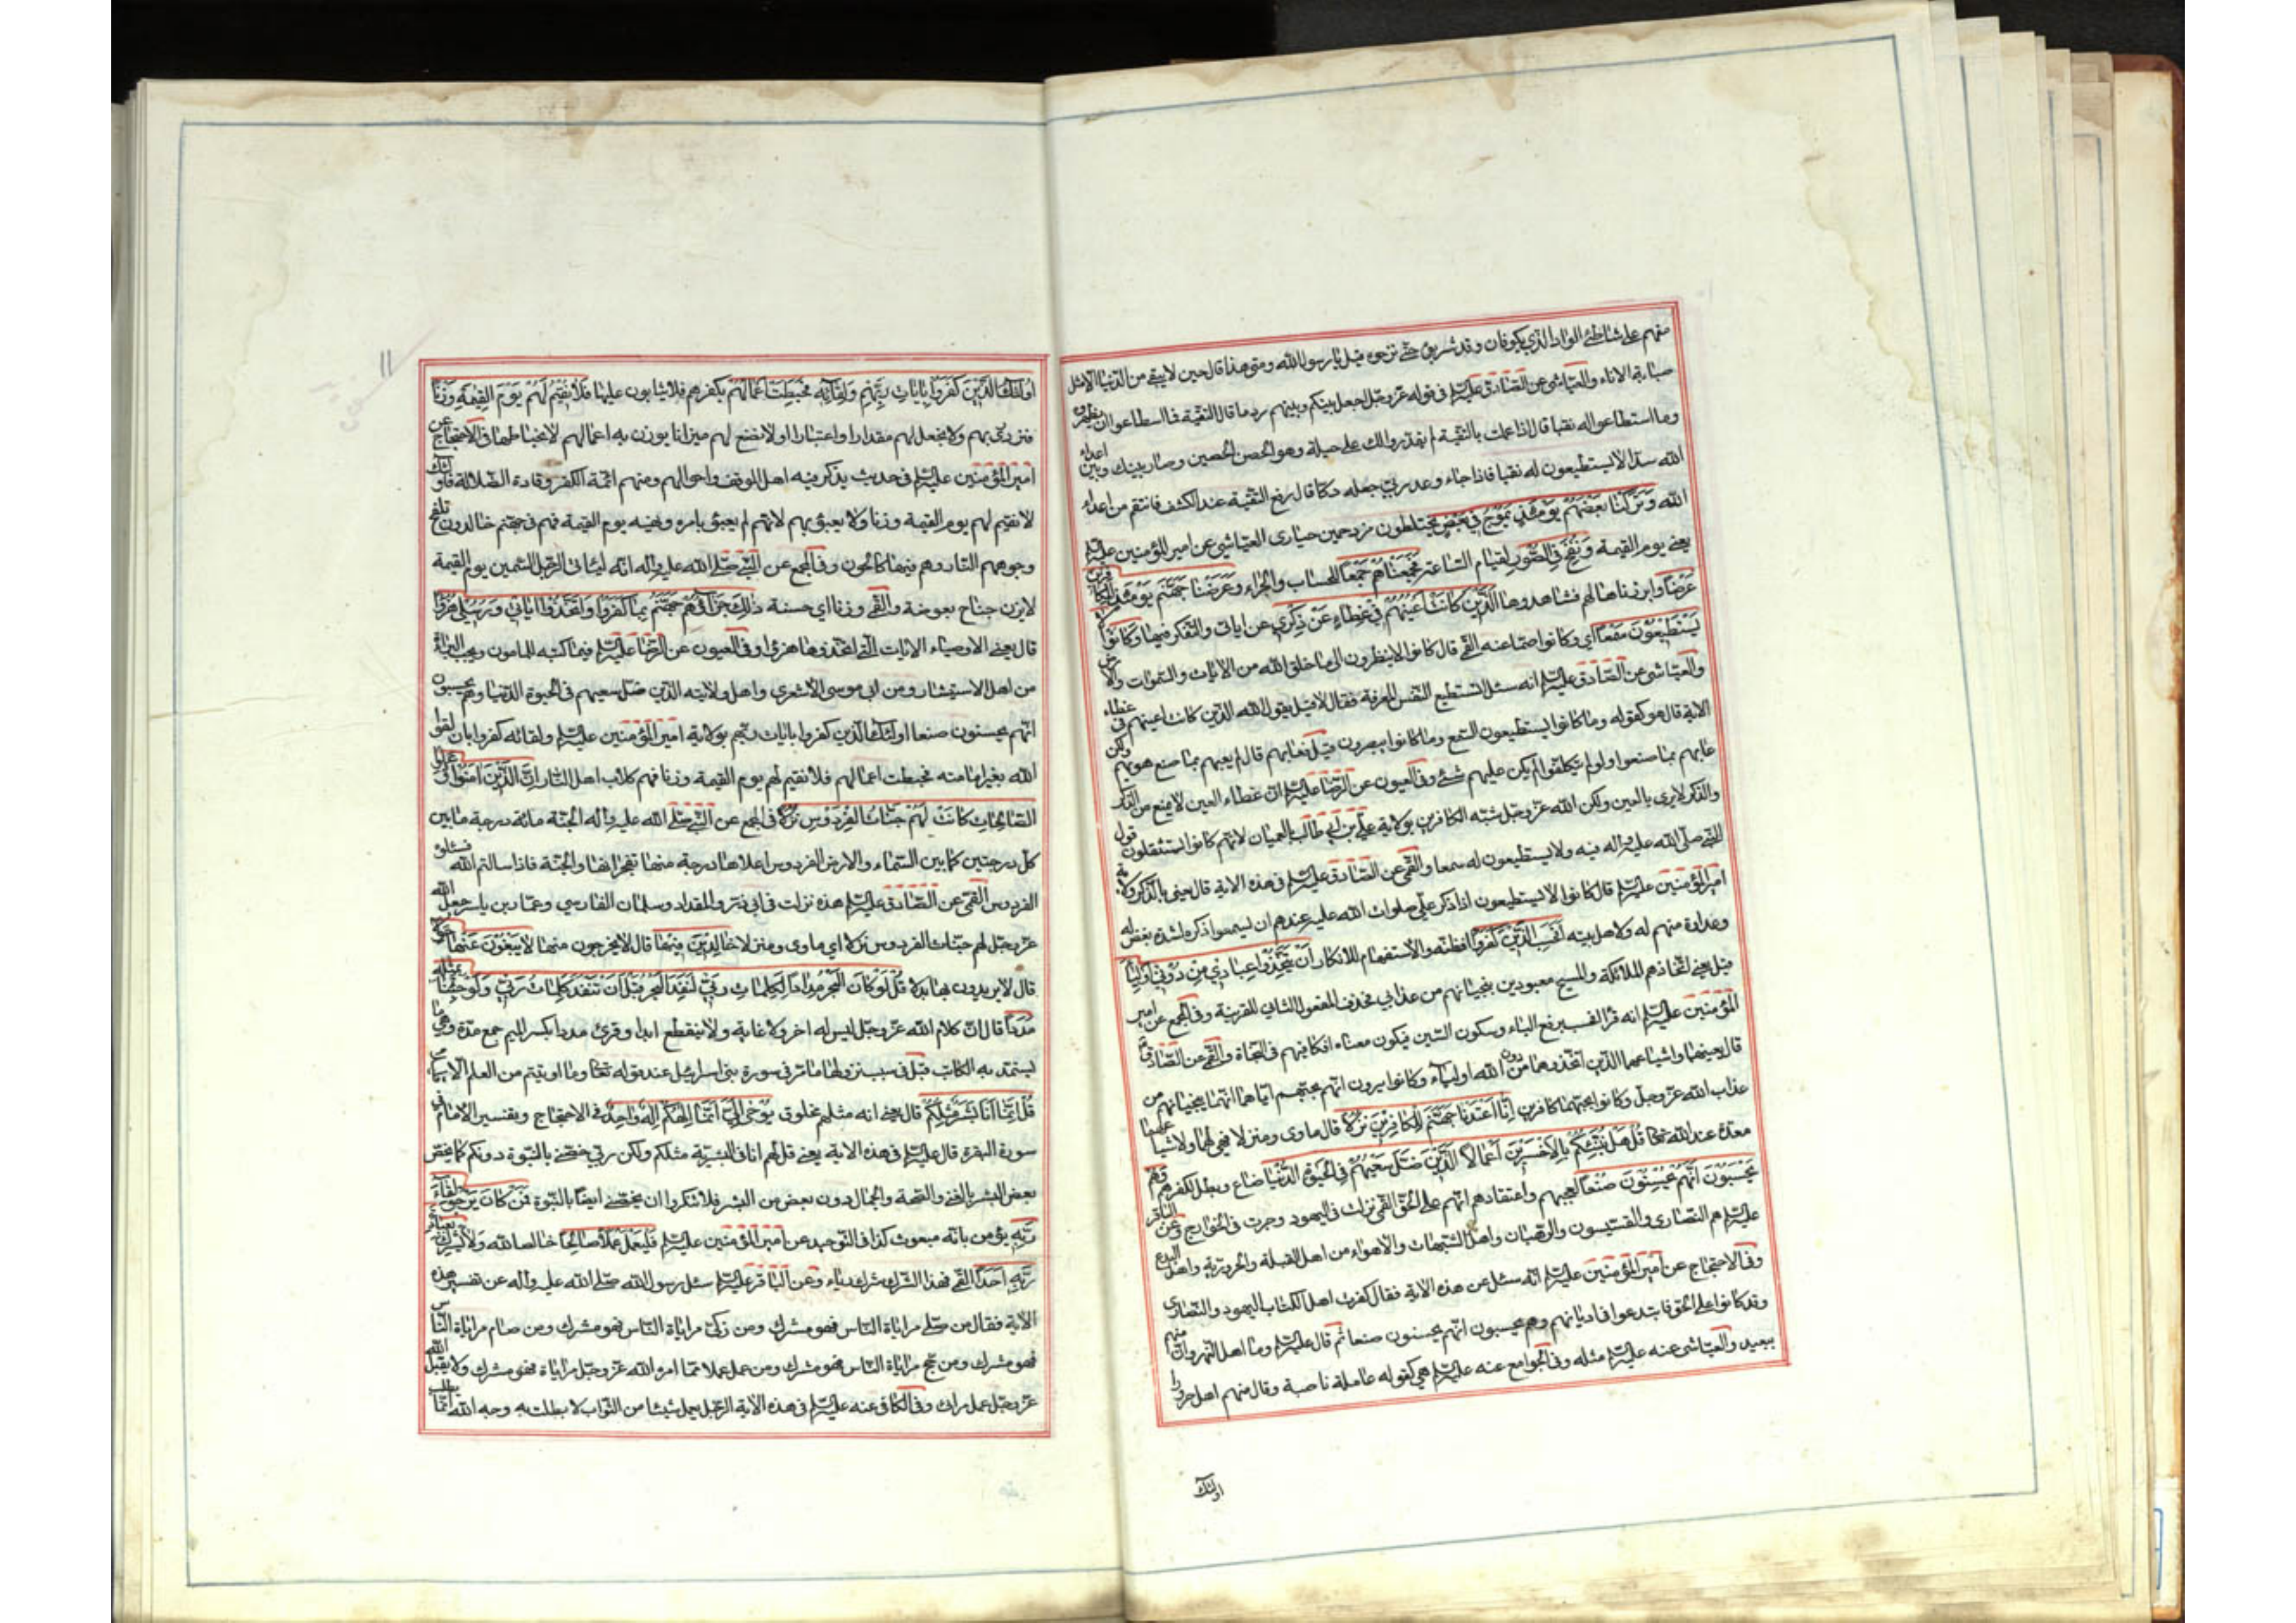 منهم على شاطئ الواد الذي بكوفان وقد شربوه حتى نزحوه قيل يا رسول الله ومتى هذا قال حين لا يبقى من الدنيا الا مثل
صبابة الاناء والعياشي عن الصادق عليه السلم في قوله عز وجل اجعل بينكم وبينهم ردما قال التقية فما اسطاعوا ان يظهروه
وما استطاعوا له نقبا قال اذا عملت بالتقية لم يقدروا لك على حيلة وهو الحصن الحصين وصار بينك وبين اعداء
الله سدا لا يستطيعون له نقبا فاذا جاء وعد ربي جعله دكا قال رفع التقية عند الكشف فانتقم من اعداء
الله وَتَرَكْنَا بَعْضَهُمْ يَوْمَئِذٍ يَمُوجُ فِي بَعْضٍ يختلطون مزدحمين حيارى العياشي عن امير المؤمنين عليه السلم
يعني يوم القيمة وَنُفِخَ فِي الصُّورِ لقيام الساعة فَجَمَعْنَاهُمْ جَمْعًا للحساب والجزاء وَعَرَضْنَا جَهَنَّمَ يَوْمَئِذٍ لِلْكَافِرِينَ
عَرْضًا وابرزناها لهم فشاهدوها الَّذِينَ كَانَتْ أَعْيُنُهُمْ فِي غِطَاءٍ عَنْ ذِكْرِي عن اياتي والتفكر فيها وَكَانُوا لا
يَسْتَطِيعُونَ سَمْعًا اي وكانوا صما عنه القمي قال كانوا لا ينظرون الى ما خلق الله من الايات والسموات والارض
والعياشي عن الصادق عليه السلم انه سئل تستطيع النفس المعرفة فقال لا قيل يقول الله الذين كانت اعينهم في غطاء
الاية قال هو كقوله وما كانوا يستطيعون السمع وما كانوا يبصرون قيل فعابهم قال لم يعبهم بما صنع هو بهم ولكن
عابهم بما صنعوا ولو لم يتكلفوا لم يكن عليهم شئ وفي العيون عن الرضا عليه السلم ان غطاء العين لا يمنع من الذكر
والذكر لا يرى بالعين ولكن الله عز وجل شبه الكافرين بولاية علي بن ابي طالب بالعميان لانهم كانوا يستثقلون قول
النبي صلى الله عليه واله فيه ولا يستطيعون له سمعا والقمي عن الصادق عليه السلم في هذه الاية قال يعني بالذكر ولاية
امير المؤمنين عليه السلم قال كانوا لا يستطيعون اذا ذكر علي صلوات الله عليه عندهم ان يسمعوا ذكره لشدة بغض له
وعداوة منهم له ولاهل بيته أَفَحَسِبَ الَّذِينَ كَفَرُوا افظنوا والاستفهام للانكار أَنْ يَتَّخِذُوا عِبَادِي مِنْ دُونِي أَوْلِيَاءَ
قيل يعني اتخاذهم الملائكة والمسيح معبودين ينجيانهم من عذابي فحذف المفعول الثاني للقرينة وفي المجمع عن امير
المؤمنين عليه السلم انه قرأ افحسب برفع الباء وسكون السين فيكون معناه افكافيهم في النجاة والقمي عن الصادق
قال يعنيهما واشياعهما الذين اتخذوهما من دون الله اولياء وكانوا يرون انهم بحبهم اياهما انهما ينجيانهم من
عذاب الله عز وجل وكانوا بحبهما كافرين إِنَّا أَعْتَدْنَا جَهَنَّمَ لِلْكَافِرِينَ نُزُلًا قال ماوى ومنزلا فهي لهما ولاشياعهما
معدة عند الله تعالى قُلْ هَلْ نُنَبِّئُكُمْ بِالْأَخْسَرِينَ أَعْمَالًا الَّذِينَ ضَلَّ سَعْيُهُمْ فِي الْحَيٰوةِ الدُّنْيَا ضاع وبطل لكفرهم وَهُمْ
يَحْسَبُونَ أَنَّهُمْ يُحْسِنُونَ صُنْعًا لعجبهم واعتقادهم انهم على الحق القمي نزلت في اليهود وجرت في الخوارج وعن الباقر
عليه السلم هم النصارى والقسيسون والرهبان واهل الشبهات والاهواء من اهل القبلة والحرورية واهل البدع
وفي الاحتجاج عن امير المؤمنين عليه السلم انه سئل عن هذه الاية فقال كفرة اهل الكتاب اليهود والنصارى
وقد كانوا على الحق فابتدعوا في اديانهم وهم يحسبون انهم يحسنون صنعا ثم قال عليه السلم وما اهل النهروان منهم
ببعيد والعياشي عنه عليه السلم مثله وفي الجوامع عنه عليه السلم هي كقوله عاملة ناصبة وقال منهم اهل حرورا
اولئك
١١
أُولَئِكَ الَّذِينَ كَفَرُوا بِآيَاتِ رَبِّهِمْ وَلِقَائِهِ فَحَبِطَتْ أَعْمَالُهُمْ بكفرهم فلا يثابون عليها فَلَا نُقِيمُ لَهُمْ يَوْمَ الْقِيٰمَةِ وَزْنًا
فنزدري بهم ولا نجعل لهم مقدارا واعتبارا او لا نضع لهم ميزانا يوزن به اعمالهم لانحباطها في الاحتجاج عن
امير المؤمنين عليه السلم في حديث يذكر فيه اهل الموقف واحوالهم ومنهم ائمة الكفر وقادة الضلالة فاولئك
لا نقيم لهم يوم القيمة وزنا ولا يعبؤ بهم لانهم لم يعبؤ بامره ونهيه يوم القيمة فهم في جهنم خالدون تلفح
وجوههم النار وهم فيها كالحون وفي المجمع عن النبي صلى الله عليه واله انه ليأتي الرجل السمين يوم القيمة
لا يزن جناح بعوضة والقمي وزنا اي حسنة ذَلِكَ جَزَاؤُهُمْ جَهَنَّمُ بِمَا كَفَرُوا وَاتَّخَذُوا آيَاتِي وَرُسُلِي هُزُوًا
قال يعني الاوصياء الايات التي اتخذوها هزؤا وفي العيون عن الرضا عليه السلم فيما كتبه للمامون ويجب البراءة
من اهل الاستيشار ومن ابي موسى الاشعري واهل ولايته الذين ضل سعيهم في الحيوة الدنيا وهم يحسبون
انهم يحسنون صنعا اولئك الذين كفروا بايات ربهم بولاية امير المؤمنين عليه السلم ولقائه كفروا بان لقوا
الله بغير امامته فحبطت اعمالهم فلا نقيم لهم يوم القيمة وزنا فهم كلاب اهل النار إِنَّ الَّذِينَ آمَنُوا وَعَمِلُوا
الصَّالِحَاتِ كَانَتْ لَهُمْ جَنَّاتُ الْفِرْدَوْسِ نُزُلًا في المجمع عن النبي صلى الله عليه واله الجنة مائة درجة ما بين
كل درجتين كما بين السماء والارض الفردوس اعلاها درجة منها تفجر انهار الجنة فاذا سالتم الله فسئلوه
الفردوس القمي عن الصادق عليه السلم هذه نزلت في ابي ذر والمقداد وسلمان الفارسي وعمار بن ياسر جعل الله
عز وجل لهم جنات الفردوس نزلا اي ماوى ومنزلا خَالِدِينَ فِيهَا قال لا يخرجون منها لَا يَبْغُونَ عَنْهَا حِوَلًا
قال لا يريدون بها بدلا قُلْ لَوْ كَانَ الْبَحْرُ مِدَادًا لِكَلِمَاتِ رَبِّي لَنَفِدَ الْبَحْرُ قَبْلَ أَنْ تَنْفَدَ كَلِمَاتُ رَبِّي وَلَوْ جِئْنَا بِمِثْلِهِ
مَدَدًا قال ان كلام الله عز وجل ليس له اخر ولا غاية ولا ينقطع ابدا وقرئ مددا بكسر الميم جمع مدة وهي ما
يستمد به الكاتب قيل في سبب نزولها ما مر في سورة بني اسرائيل عند قوله تعالى وما اوتيتم من العلم الا
قُلْ إِنَّمَا أَنَا بَشَرٌ مِثْلُكُمْ قال يعني انه مثلهم مخلوق يُوحَى إِلَيَّ أَنَّمَا إِلَهُكُمْ إِلَهٌ وَاحِدٌ في الاحتجاج وتفسير الامام في
سورة البقرة قال عليه السلم في هذه الاية يعني قل لهم انا في البشرية مثلكم ولكن ربي خصني بالنبوة دونكم كما يخص
بعض البشر بالغنى والصحة والجمال دون بعض من البشر فلا تنكروا ان يخصني ايضا بالنبوة فَمَنْ كَانَ يَرْجُو لِقَاءَ
رَبِّهِ يؤمن بانه مبعوث كذا في التوحيد عن امير المؤمنين عليه السلم فَلْيَعْمَلْ عَمَلًا صَالِحًا خالصا لله وَلَا يُشْرِكْ بِعِبَادَةِ
رَبِّهِ أَحَدًا القمي فهذا الشرك شرك رياء وعن الباقر عليه السلم سئل رسول الله صلى الله عليه واله عن تفسير هذه
الاية فقال من صلى مراياة الناس فهو مشرك ومن زكى مراياة الناس فهو مشرك ومن صام مراياة الناس
فهو مشرك ومن حج مراياة الناس فهو مشرك ومن عمل عملا مما امر الله عز وجل مراياة فهو مشرك ولا يقبل الله
عز وجل عمل مراء وفي الكافي عنه عليه السلم في هذه الاية الرجل يعمل شيئا من الثواب لا يطلب به وجه الله انما يطلب